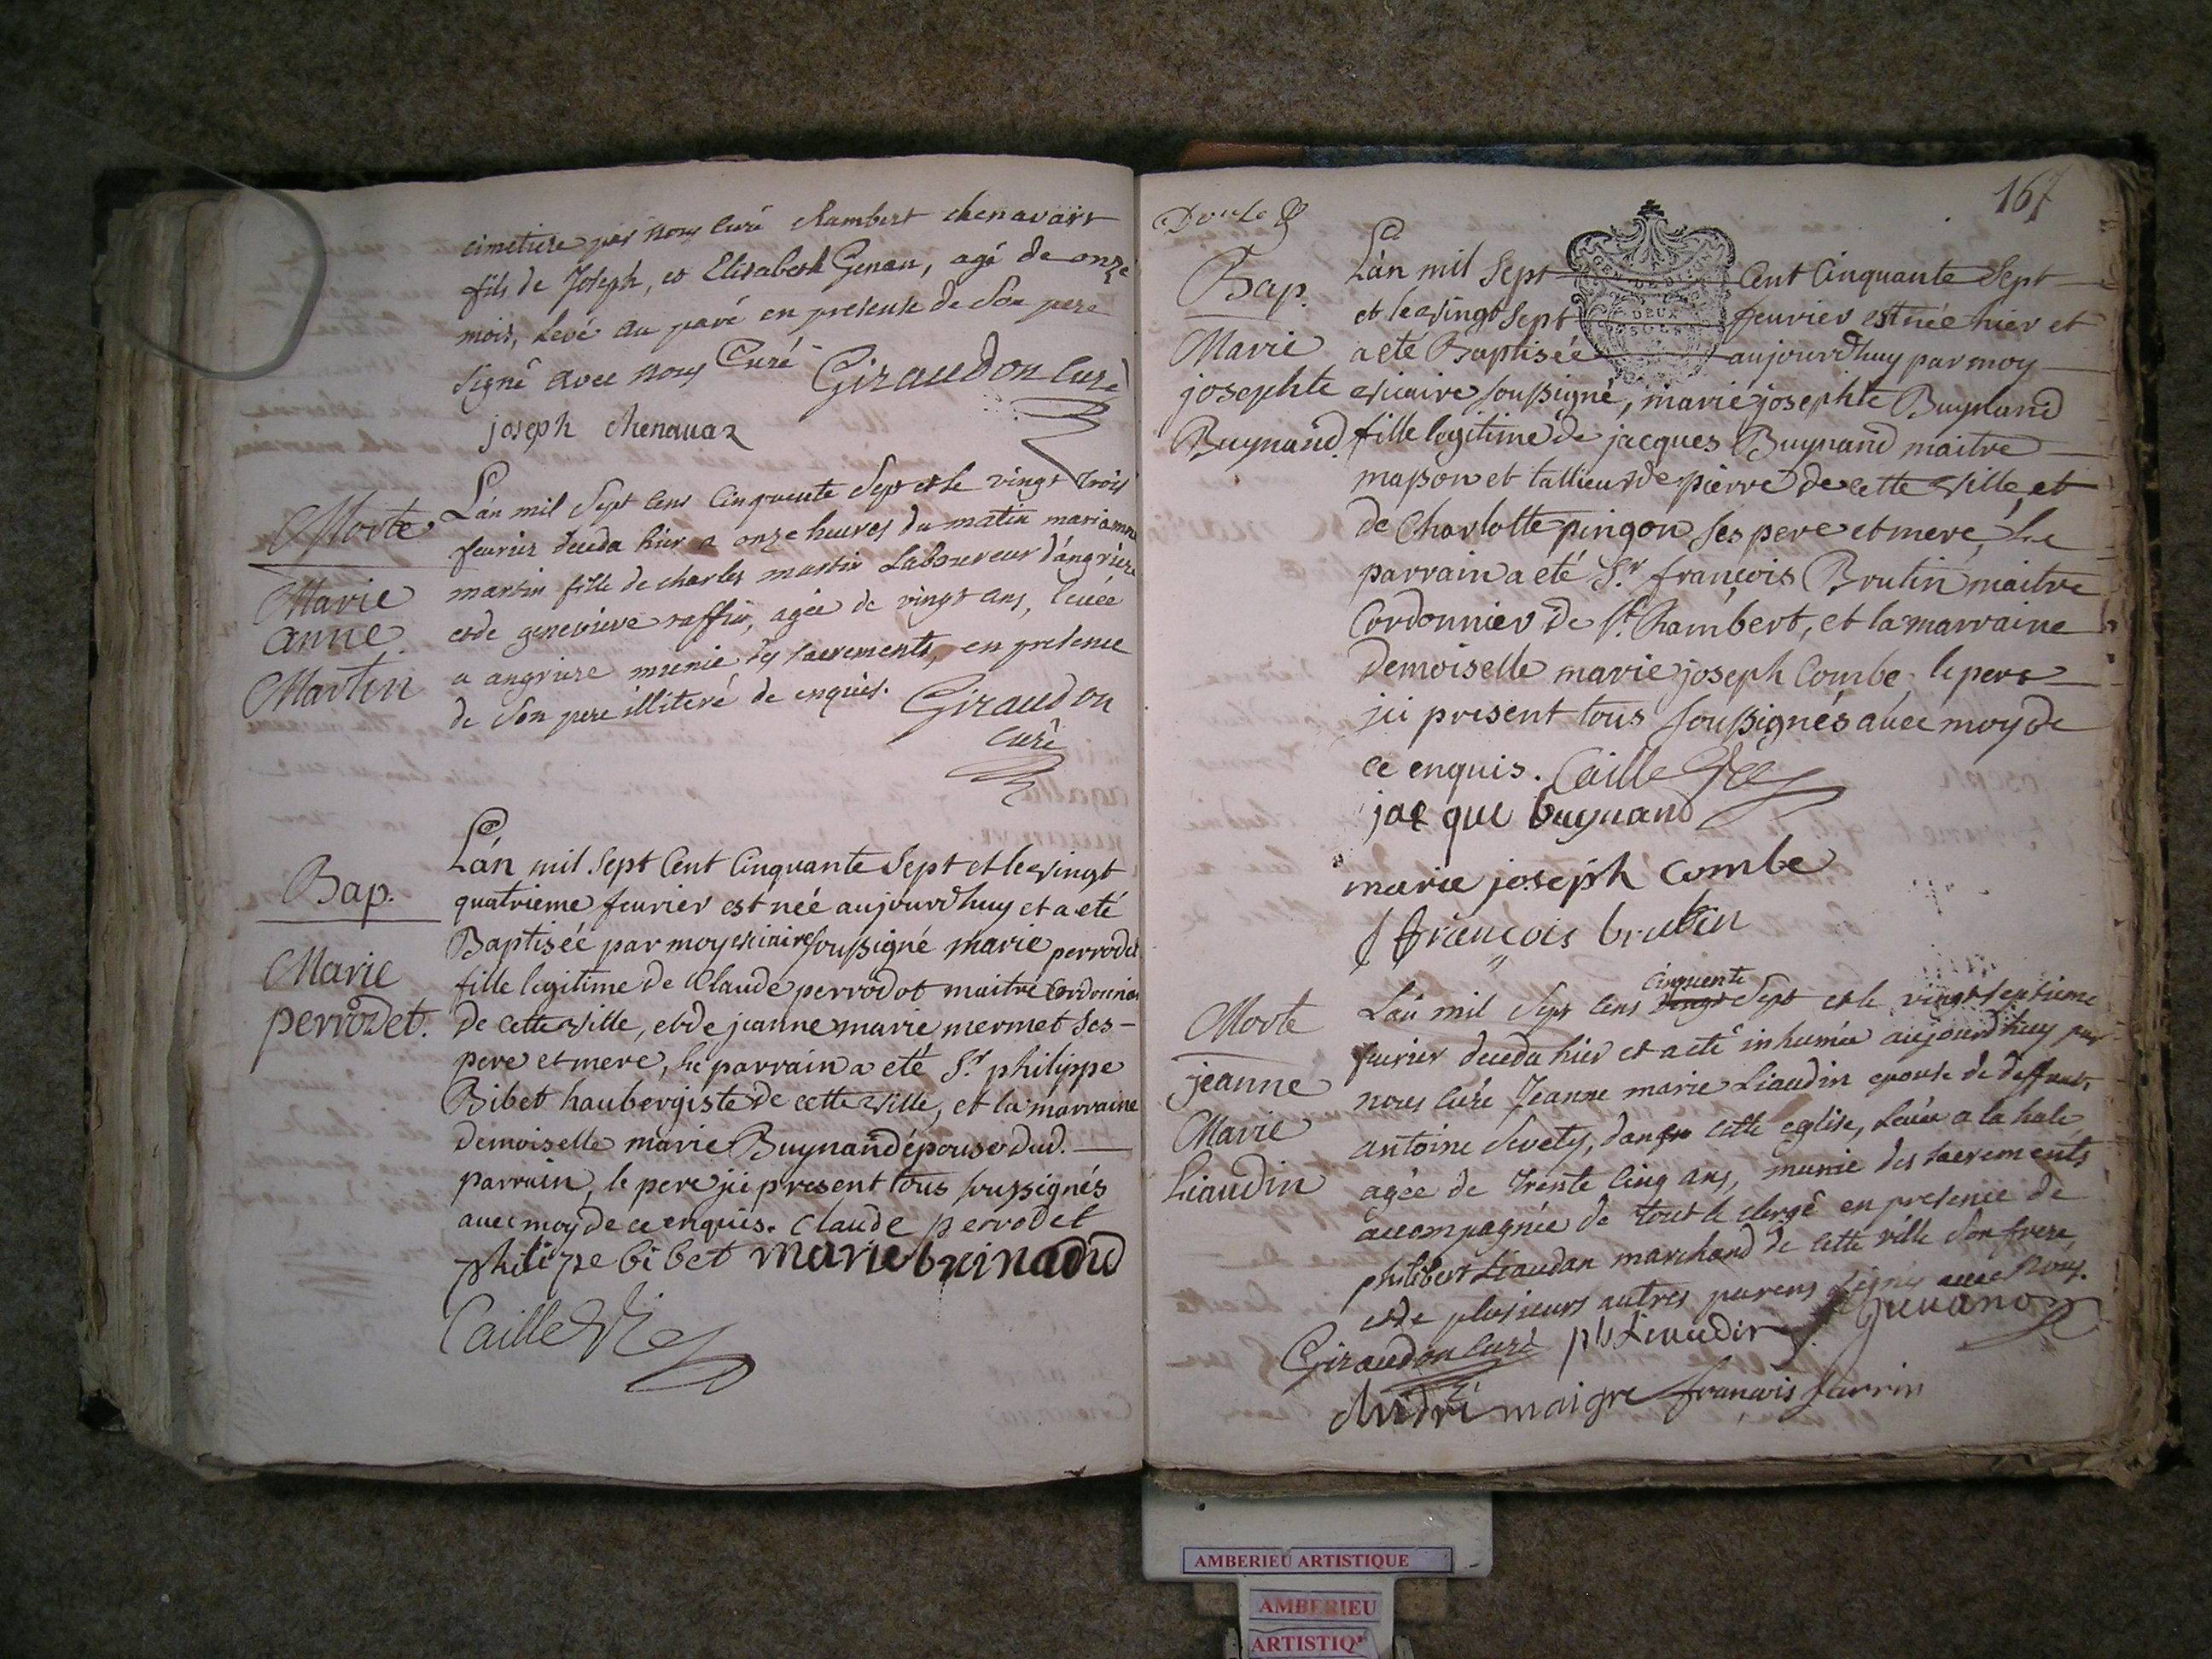 cimetiere par nous Curé Rambert chenavart
fils de Joseph, et Elisabeth Genau, agé de onze
mois, Levé au pavé en presense de Son pere
Signé avec nous Curé Giraudon Curé
joseph chenauaz
Morte
Marie
anne
Martin
L'an mil Sept Cens Cinquente Sept et le vingt trois
feurier deceda hier a onze heures du matin marianne
martin fille de charles martin Laboureur d'angriere
et de genevieve raffin, agée de vingt ans, levée
a angriere munie des sacrements, en presence
de Son pere illiteré de enquis. Giraudon
Curé
Bap.
Marie
perrodet.
L'an mil Sept Cent Cinquante Sept et le vingt
quatrieme feurier est née aujourd'huy et a eté
Baptisée par moy viciaire soussigné marie perrodet
fille legitime de Claude perrodot maitre Cordonnier
de cette ville, et de jeanne marie mermet Ses
pere et mere, Le parrain a eté Sr. philippe
Bibet haubergiste de cette ville, et la marraine
demoiselle marie Buynand épouse dud.
parrain, le pere ici present tous soussignés
avec moy de ce enquis. Claude perrodet
philipe bibet marie buinand
Caille Vic
167
Deux S
Bap.
Marie
josephte
Buynand.
GEN DE DIJON
DEUX
SOLS
L'an mil Sept Cent Cinquante Sept
et le vingt Sept feurier est née hier et
a eté Baptisée aujourd'huy par moy
viciaire soussigné, marie josephte Buynand
fille legitime de jacques Buynand maitre
masson et tallieur de pierre de cette ville et
de Charlotte pingon Ses pere et mere, Le
parrain a eté Sr. françois Brutin maitre
Cordonnier de St. Rambert, et la marraine
demoiselle marie joseph Combe, le pere
ici present tous soussignés avec moy de
ce enquis. Caille Vic
jacque buynand
marie joseph Combe
françois brutin
Morte
jeanne
Marie
Liaudin
cinquente
L'an mil Sept Cens vingt Sept et le vingt Septieme
feurier deceda hier et a eté inhumée aujourd'huy par
nous Curé Jeanne marie Liaudin epouse de deffunt
antoine Sevety, dans cette eglise, Levée a la hale
agée de trente Cinq ans, munie des sacrements
accompagnée de tout le clergé en presence de
philibert Liaudan marchand de cette ville Son frere,
et de plusieurs autres parens Signés avec Nous.
Giraudon Curé ph Liaudin
André maigre françois Sarrin
AMBERIEU ARTISTIQUE
AMBERIEU
ARTISTIQ